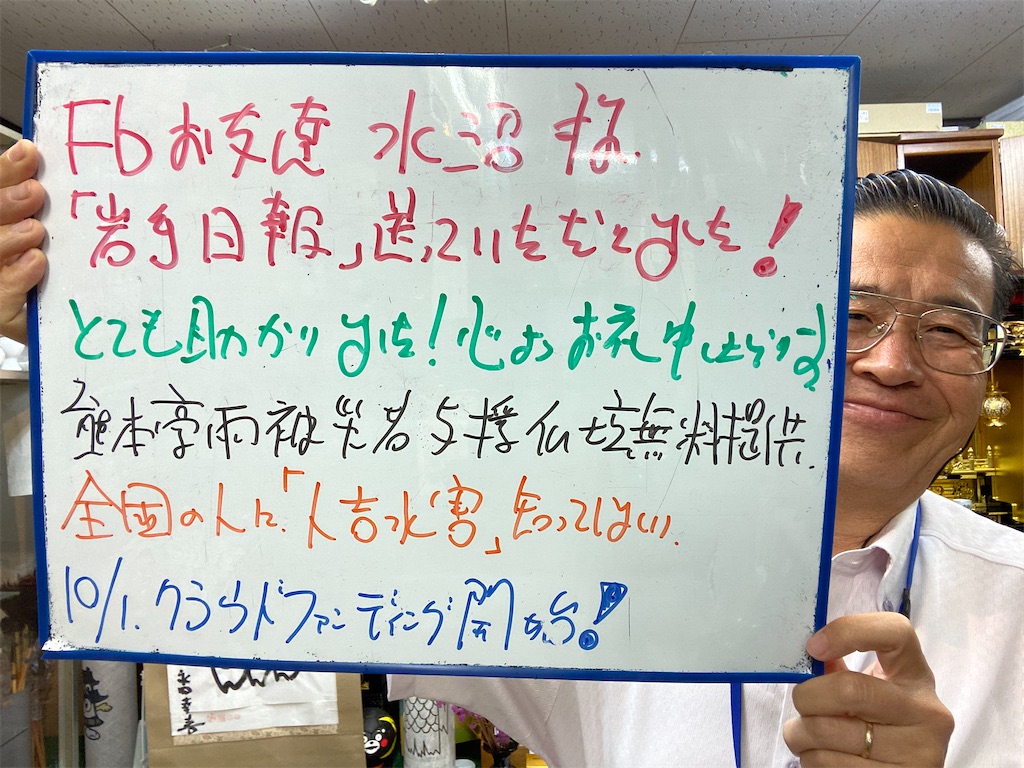 Fbお友達 水沼 様
「岩手日報」送っていただきました!
とても助かりました!心よりお礼申し上げます
熊本豪雨被災者支援仏壇無料提供.
全国の人に、「人吉水害」知ってほしい.
10/1.クラウドファンディング開始!